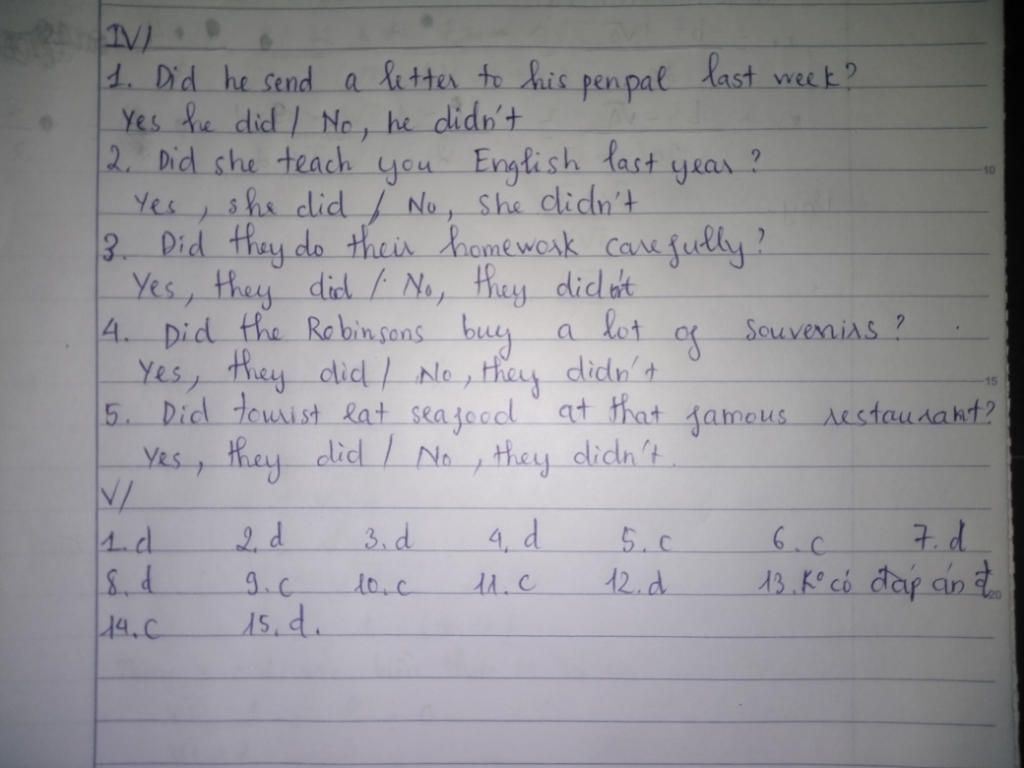 IV/
1. Did he send a letter to his penpal last week?
Yes he did / No, he didn't
2. Did she teach you English last year?
Yes, she did / No, she didn't
3. Did they do their homework carefully?
Yes, they did / No, they didn't
4. Did the Robinsons buy a lot of souvenirs?
Yes, they did / No, they didn't
5. Did tourist eat seafood at that famous restaurant?
Yes, they did / No, they didn't.
V/
1. d 2. d 3. d 4. d 5. c 6. c 7. d
8. d 9. c 10. c 11. c 12. d 13. K° có đáp án đ
14. c 15. d.
10
15
20